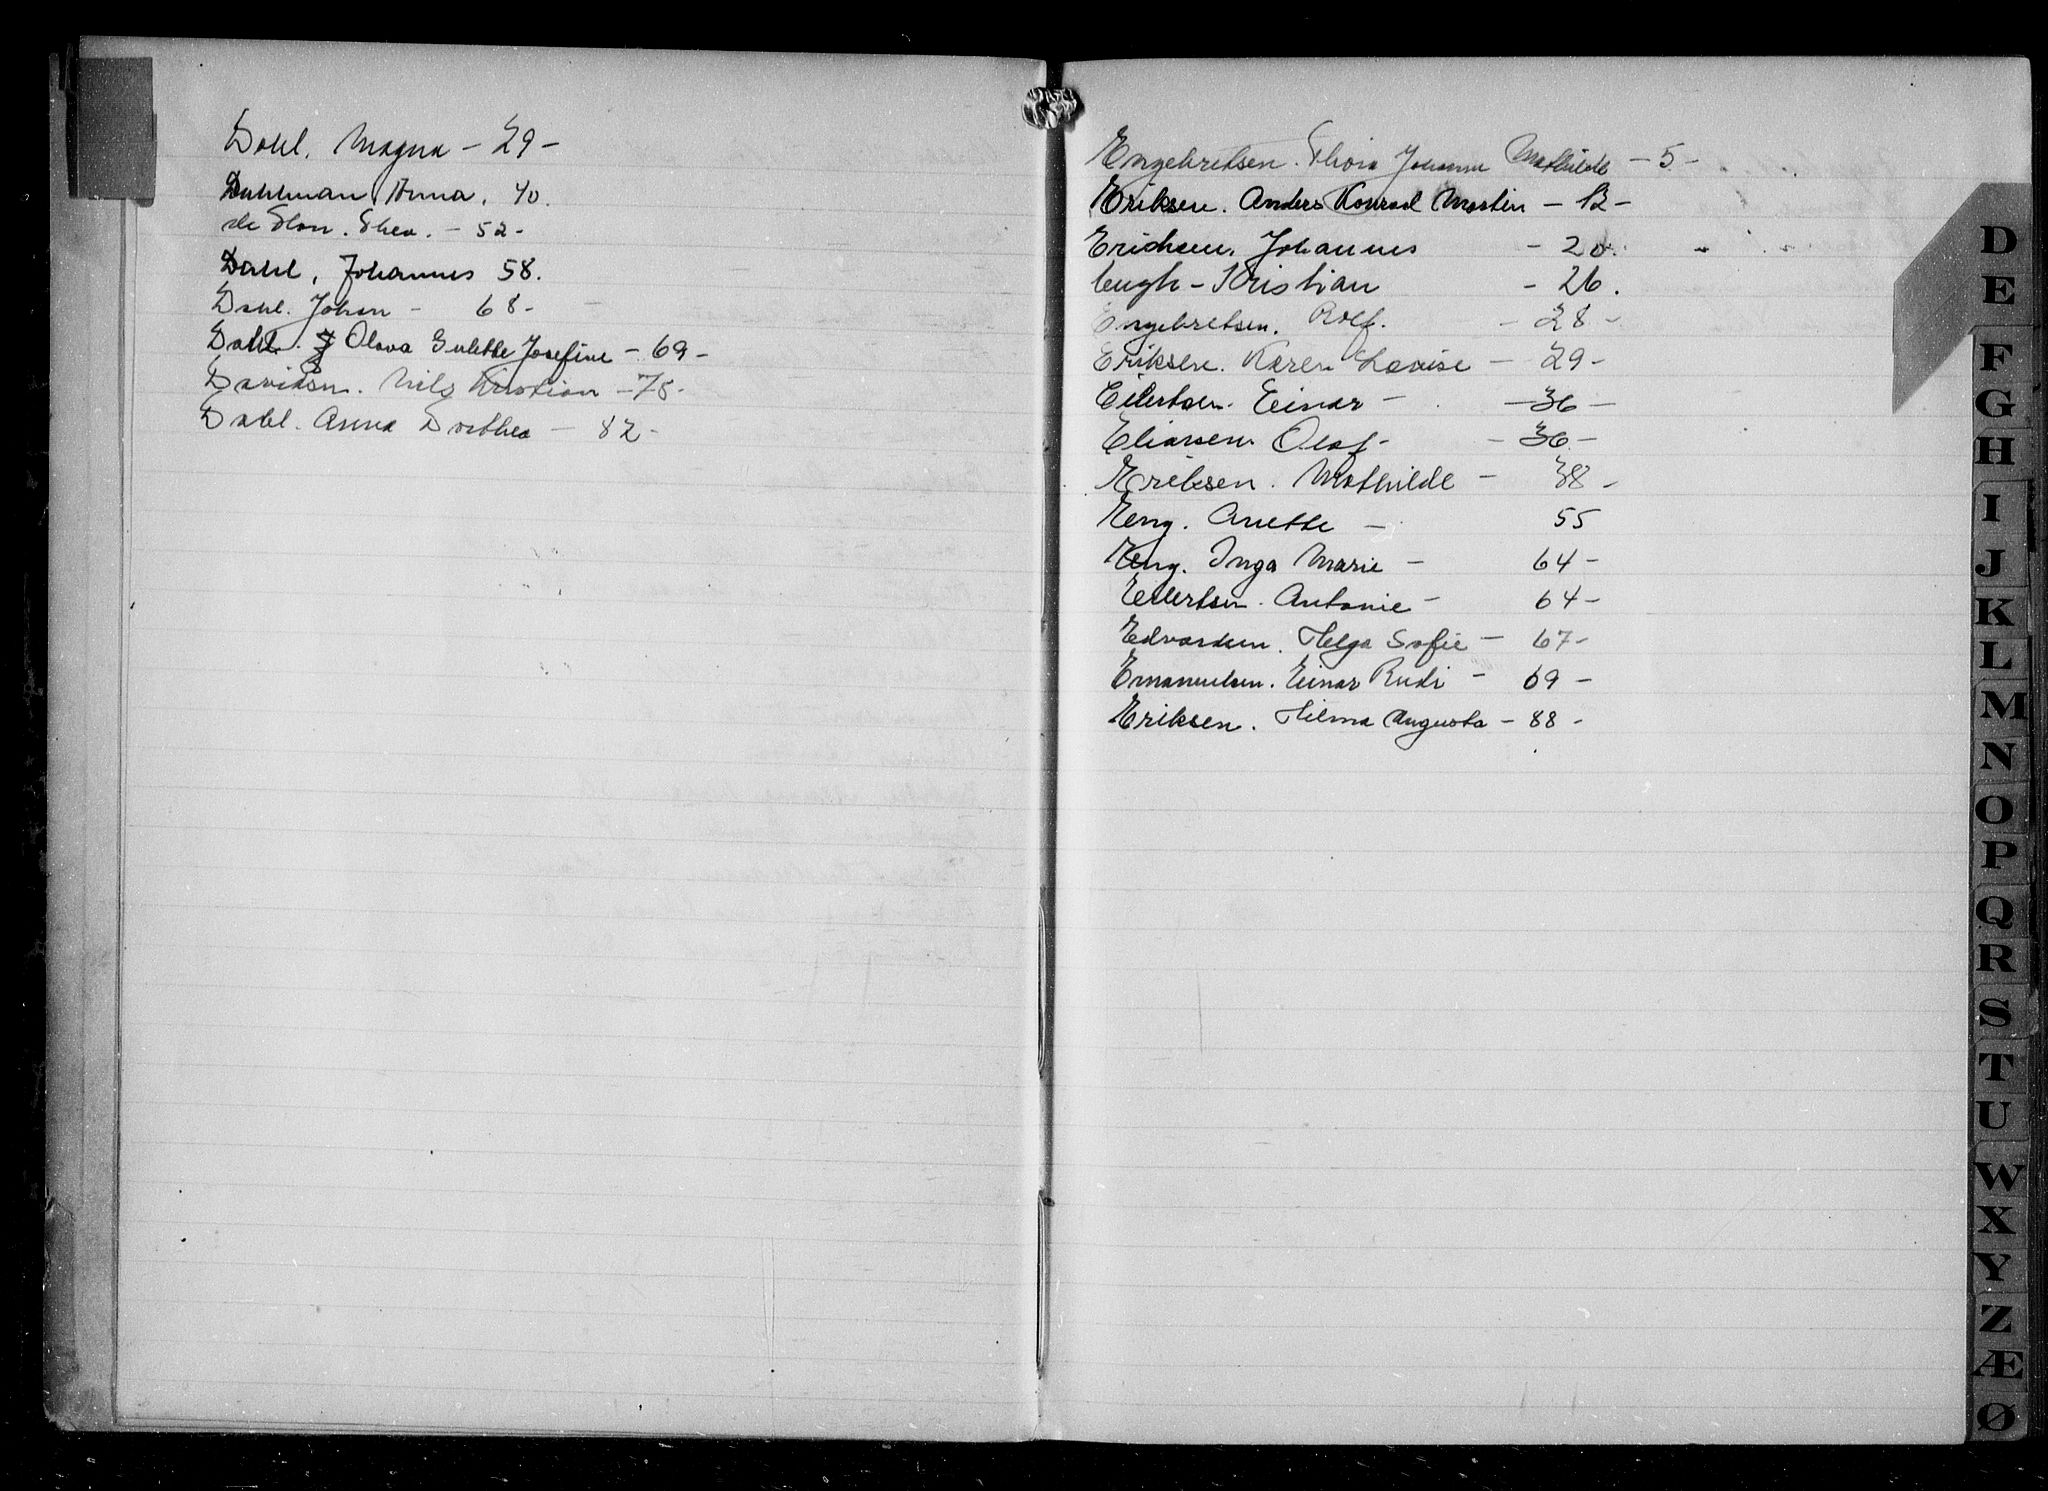 Dahl. Magna - 29 -
Dahlman Anna. 40.
de Flon. Thea. - 52 -
Dahl, Johannes 58.
Dahl. Johan - 68 -
Dahl. Olava Gulette Josefine - 69 -
Davidsen. Nils Kristian - 75 -
Dahl. Anna Dorthea - 82 -
Engebretsen. Thora Johanne Mathilde - 5 -
Eriksen. Anders Konrad Martin - 12 -
Erichsen, Johannes - 20.
Engh - Kristian - 26.
Engebretsen. Rolf. - 28 -
Eriksen. Karen Lovise - 29 -
Eilertsen. Einar - - 36 -
Eliassen Olaf - - 36 -
Eriksen. Mathilde - 38 -
Eng. Anette - 55
Eng. Inga Marie - 64 -
Eilertsen. Antonie - 64 -
Edvardsen. Helga Sofie - 67 -
Emanuelsen. Einar Rudi - 69 -
Eriksen. Hilma Augusta - 88 -
D
E
F
G
H
I
J
K
L
M
N
O
P
Q
R
S
T
U
W
X
Y
Z
Æ
Ø